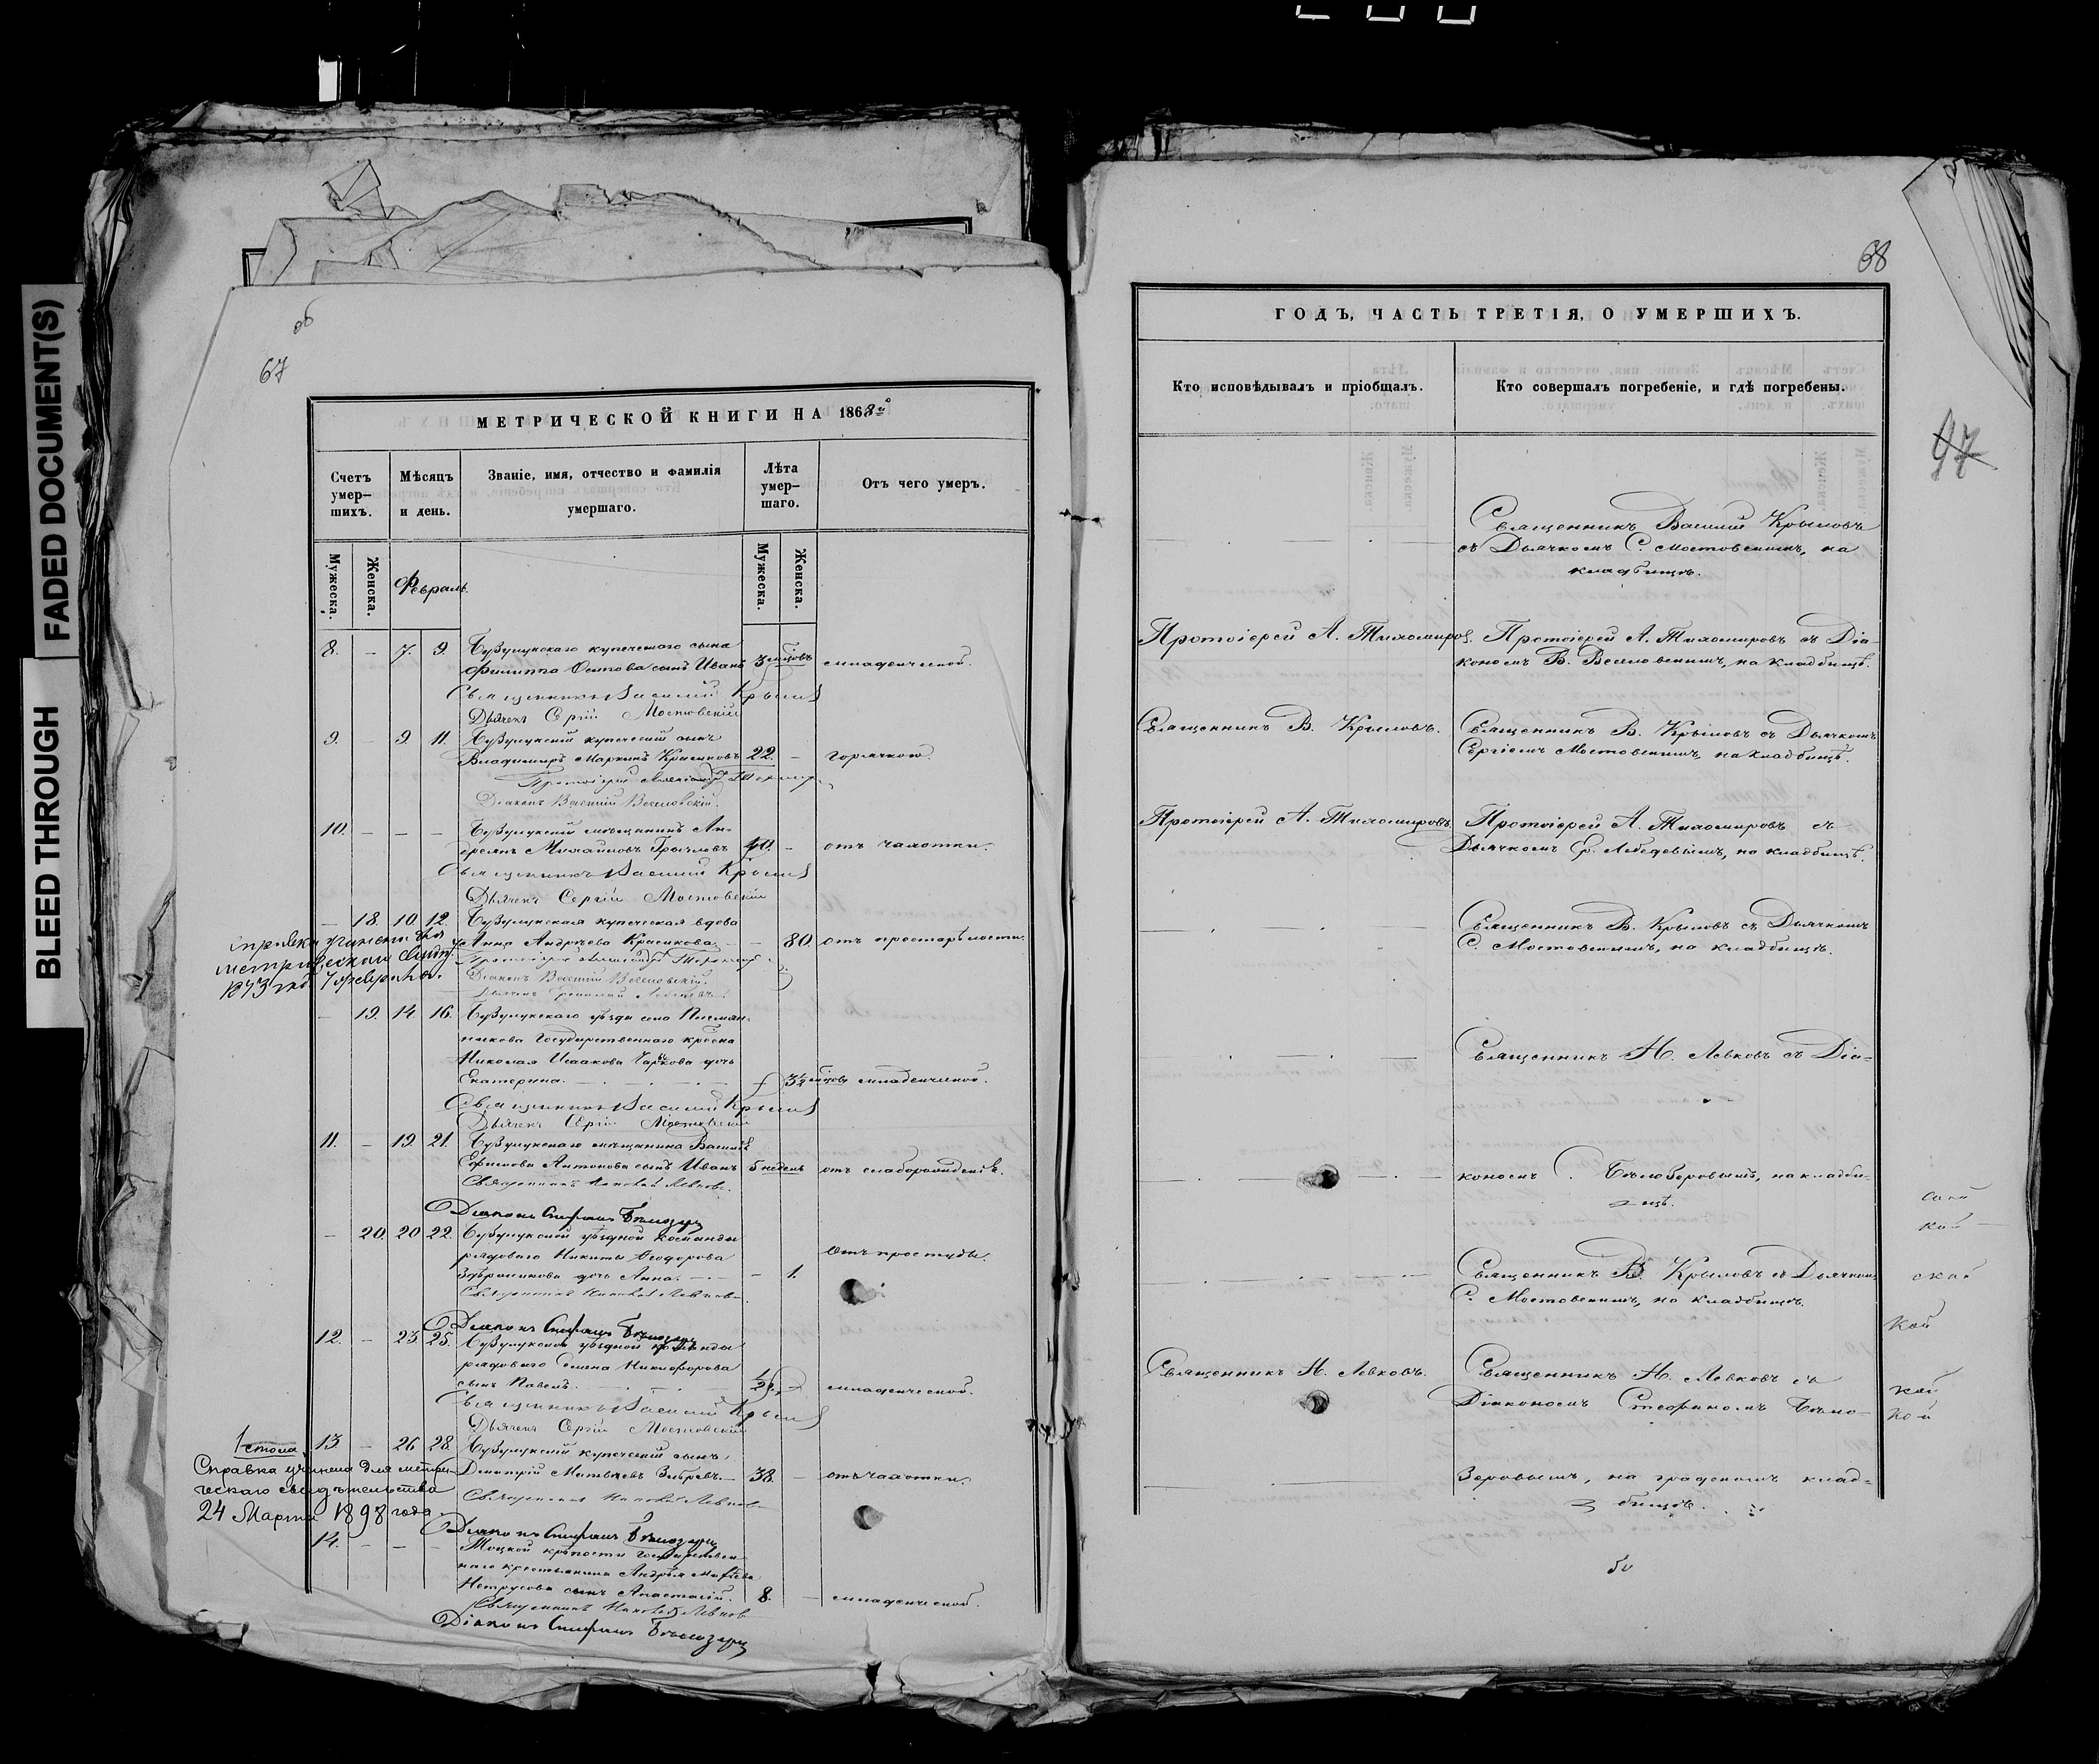 BLEED THROUGH
FADED DOCUMENT(S)
об
67
МЕТРИЧЕСКОЙ КНИГИ НА 1868й
Счетъ умер-
шихъ.
Мѣсяцъ
и день.
Званіе, имя, отчество и фамилія
умершаго.
Лѣта
умер-
шаго.
Отъ чего умеръ.
Мужеска.
Женска.
Февраль.
Мужеска.
Женска.
8. – 7. 9. Бузулукскаго купеческаго сына
Филиппа Осипова сынъ Иванъ 3 мѣсяцовъ младенческой.
Священникъ Василий Крылов
Дьячекъ Сергій Мостовскій
9. – 9. 11. Бузулукскій купеческій сынъ
Владиміръ Маркинъ Красиковъ 22. – горячкою.
Протоіерей Александръ Тихомир
Діаконъ Василій Веселовскій.
10. – – – Бузулукскій мѣщанинъ Ан-
дреянъ Михайловъ 40. – отъ чахотки.
Священникъ Василий Крылов
Дьячекъ Сергій Мостовскій
– 18. 10. 12. Бузулукская купеческая вдова
Анна Андреева Красикова. – – 80. отъ престарѣлости.
Протоіерей Александръ Тихомир
Діаконъ Василій Веселовскій.
справка учинена для
метрическаго свид.
1873 год. 7 февраля.
– 19. 14. 16. Бузулукскаго уѣзда села
Государственнаго крест.
Николая Исаакова дочь
Екатерина. – – 3½ мѣсяцовъ младенческой.
Священникъ Василий Крылов
Дьячекъ Сергій Мостовскій
11. – 19. 21. Бузулукскаго мѣщанина Василія
Ефимова Антонова сынъ Иванъ 5 недель отъ слаборожденія.
Священникъ Николай Левков.
Діаконъ Стефанъ Бѣлозер
– 20. 20. 22. Бузулукской уѣздной команды
рядоваго Никиты Ѳеодорова
дочь Анна. – – 1. отъ простуды.
Священникъ Николай Левков
Діаконъ Стефанъ Бѣлозер
12. – 23. 25. Бузулукской уѣздной команды
рядоваго Семена Никифорова
сынъ Павелъ. младенческой.
Священникъ Василий Крылов
Дьячекъ Сергій Мостовскій
13. – 26. 28. Бузулукскій купеческій сынъ
Дмитрій Матвѣевъ – 38. – отъ чахотки.
Священникъ Николай Левков
Діаконъ Стефанъ Бѣлозер
1 стола
Справка учинена для метри-
ческаго свидѣтельства
24 Марта 1898 года
14. – – – Тоцкой крѣпости Государствен-
наго крестьянина Андрея
сынъ Анастасій. 8. – младенческой.
Священникъ Николай Левков
Діаконъ Стефанъ Бѣлозер
68
97
ГОДЪ, ЧАСТЬ ТРЕТІЯ, О УМЕРШИХЪ.
Кто исповѣдывалъ и пріобщалъ.
Кто совершалъ погребеніе, и гдѣ погребены.
Священникъ Василій Крыловъ
съ Дьячкомъ С. Мостовскимъ, на
кладбищѣ.
Протоіерей А. Тихомиров.
Протоіерей А. Тихомировъ съ Діа-
кономъ В. Веселовскимъ, на кладбищѣ.
Священникъ В. Крыловъ.
Священникъ В. Крыловъ съ Дьячкомъ
Сергіемъ Мостовскимъ, на кладбищѣ.
Протоіерей А. Тихомировъ.
Протоіерей А. Тихомировъ съ
Дьячкомъ Лебедевымъ, на кладбищѣ.
Священникъ В. Крыловъ съ Дьячкомъ
С. Мостовскимъ, на кладбищѣ.
Священникъ Н. Левковъ съ Діа-
кономъ Бѣлозеровымъ, на кладби-
щѣ.
Священникъ В. Крыловъ съ Дьячкомъ
С. Мостовскимъ, на кладбищѣ.
Священникъ Н. Левковъ.
Священникъ Н. Левковъ съ
Діакономъ Стефаномъ Бѣло-
зеровымъ, на градскомъ клад-
бищѣ.
кой
ской
кой
кой
кой